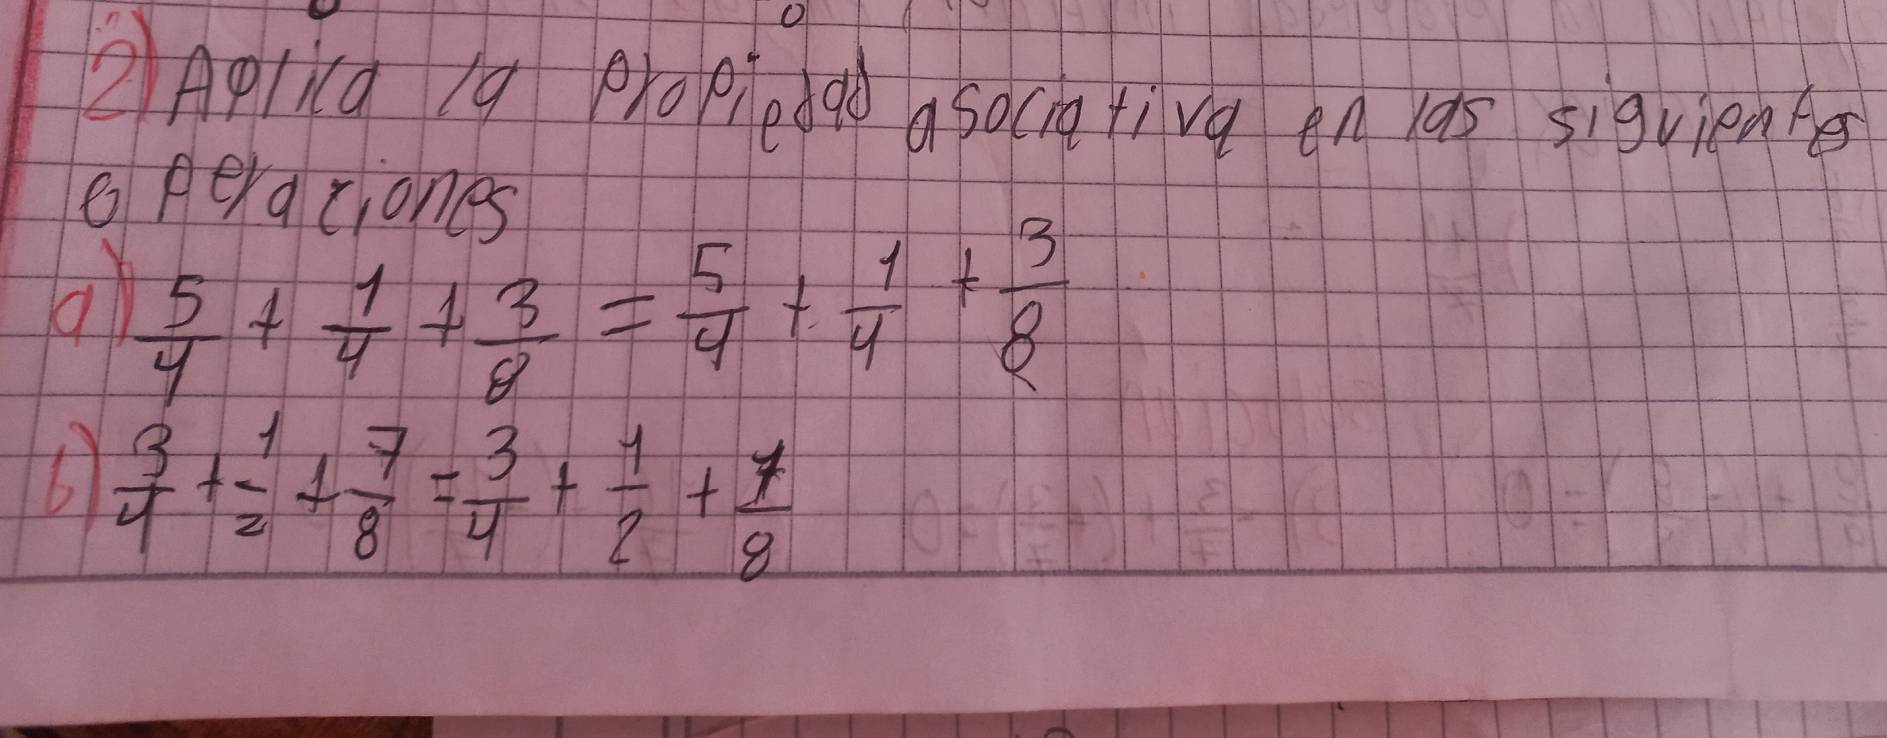 2) Aplica la propiedad asociativa en las siguientes
operaciones
a) 5/4 + 1/4 + 3/8 = 5/4 + 1/4 + 3/8
b) 3/4 + 1/2 + 7/8 = 3/4 + 1/2 + 7/8